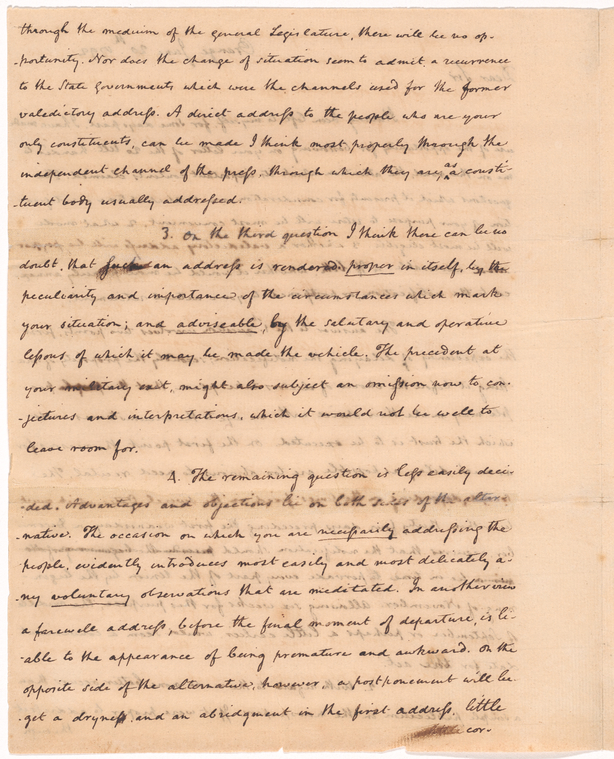 through the medium of the general Legislature, there will be no op-
-portunity. Nor does the change of situation seem to admit a recurrence
to the State Governments which were the channels used for the former
valedictory address. A direct address to the people who are your
only constituents, can be made I think most properly through the
independent channel of the press, through which they are, as a consti-
tuent body usually addressed.
3. On the third question I think there can be no
doubt, that such an address is rendered proper in itself, by the
peculiarity and importance of the circumstances which mark
your situation; and adviseable, by the salutary and operative
lessons of which it may be made the vehicle. The precedent at
your military exit, might also subject an omission now to con-
-jectures and interpretations, which it would not be well to
leave room for.
4. The remaining question is less easily deci-
-ded. Advantages and objections lie on both sides of the alter-
-native. The occasion on which you are necessarily addressing the
people, evidently introduces most easily and most delicately a-
-ny voluntary observations that are meditated. In another view
a farewell address, before the final moment of departure, is li-
-able to the appearance of being premature and awkward. On the
opposite side of the alternative, however, a postponement will be-
-get a dryness, and an abridgment in the first address, little
cor-